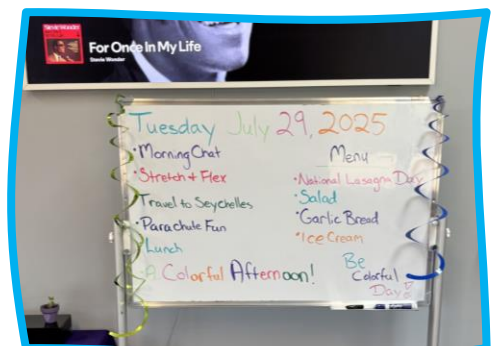 For Once In My Life
Stevie Wonder
Tuesday July 29, 2025
• Morning Chat
• Stretch + Flex
Travel to Seychelles
• Parachute Fun
Lunch
A Colorful Afternoon!
Menu
• National Lasagna Day
• Salad
• Garlic Bread
• Ice Cream
Be
Colorful
Day!